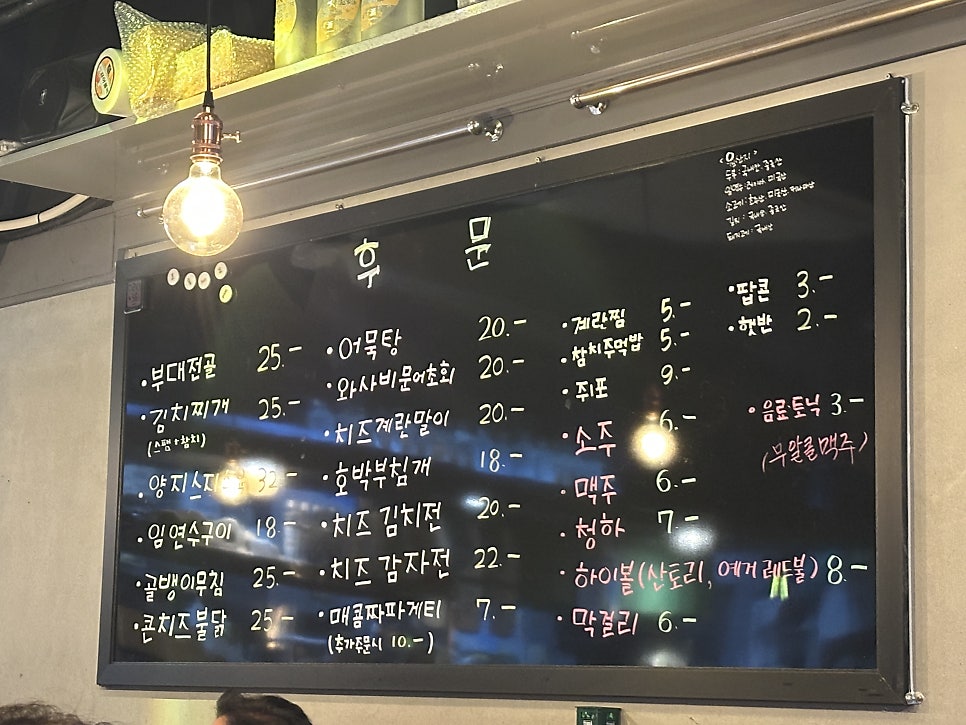 후 문
·부대전골 25.-
·김치찌개 25.-
(스팸+참치)
·양지스지 32.-
·임연수구이 18.-
·골뱅이무침 25.-
·콘치즈불닭 25.-
·어묵탕 20.-
·와사비문어초회 20.-
·치즈계란말이 20.-
·호박부침개 18.-
·치즈 김치전 20.-
·치즈 감자전 22.-
·매콤짜파게티 7.-
(추가주문시 10.-)
·계란찜 5.-
·참치주먹밥 5.-
·쥐포 9.-
·소주 6.-
·맥주 6.-
·청하 7.-
·하이볼(산토리, 예거레드불) 8.-
·막걸리 6.-
·팝콘 3.-
·햇반 2.-
·음료·토닉 3.-
(무알콜맥주)
김치 : 국내산 중국산
돼지고기 : 국내산